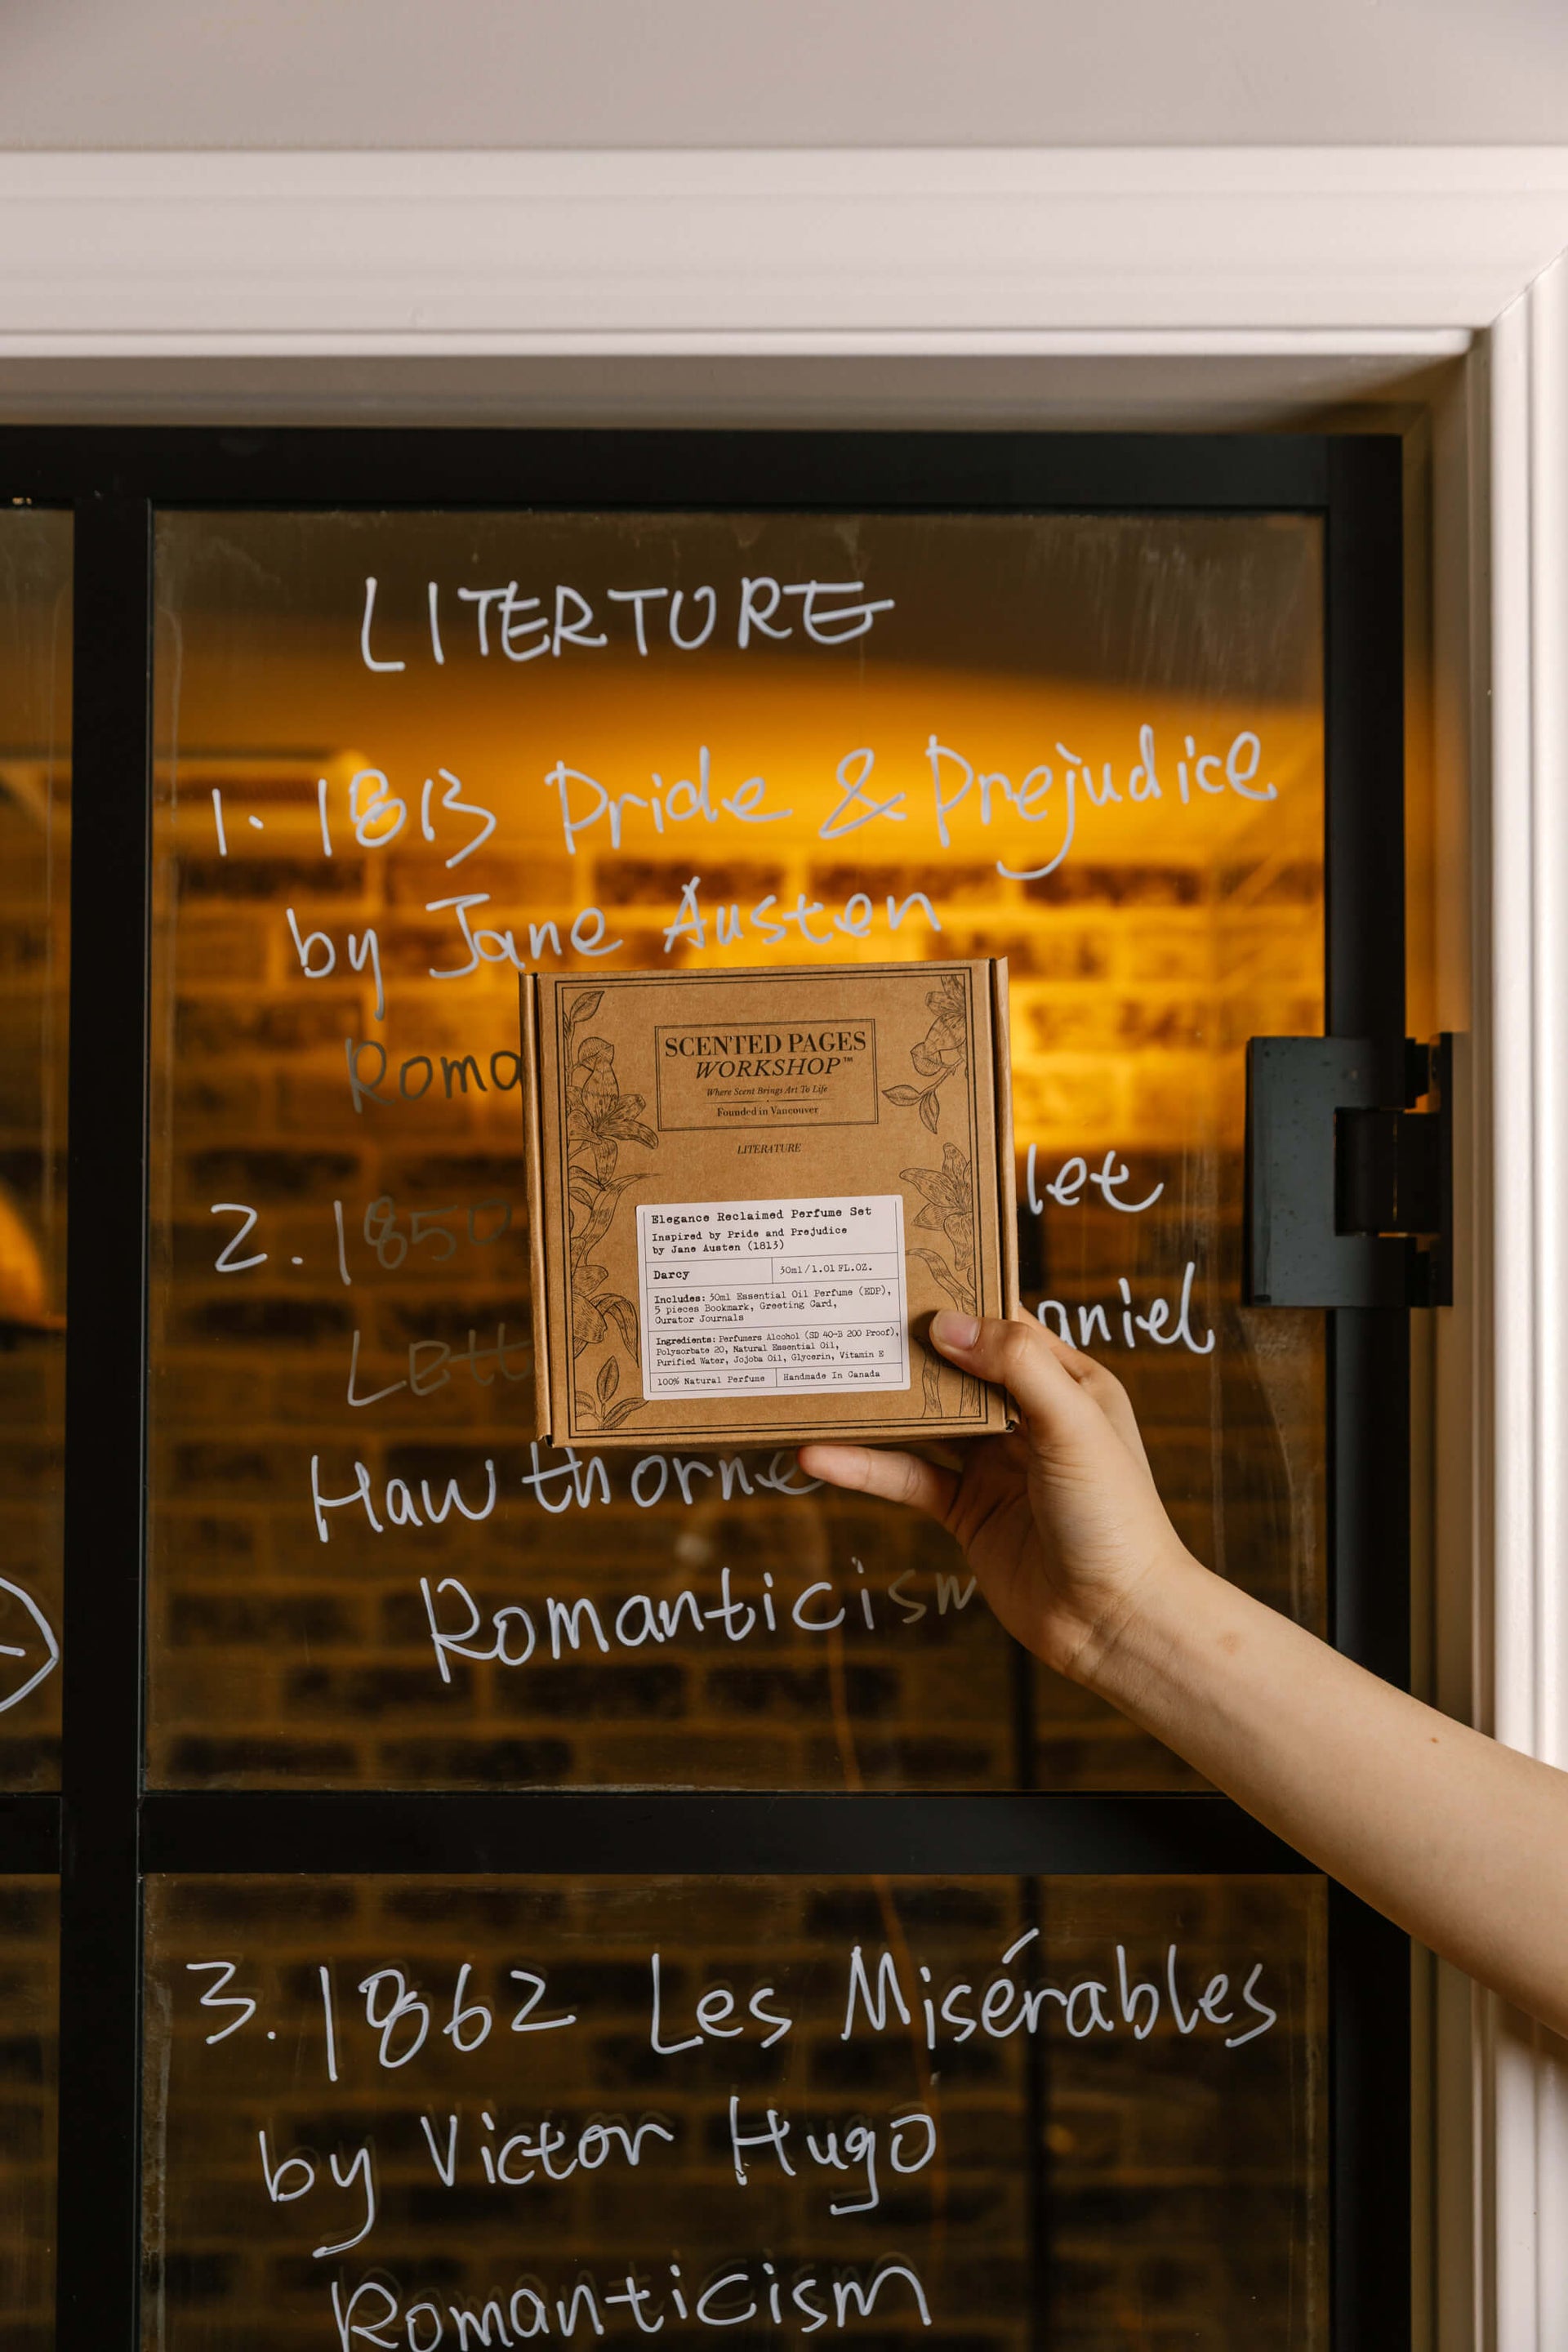 LITERTURE
1. 1813 Pride & Prejudice
by Jane Austen
Roma
2. 1850 let
Lett aniel
Hawthorne
Romanticism
SCENTED PAGES
WORKSHOP™
Where Scent Brings Art To Life
Founded in Vancouver
LITERATURE
Elegance Reclaimed Perfume Set
Inspired by Pride and Prejudice
by Jane Austen (1813)
Darcy 30ml/1.01 FL.OZ.
Includes: 30ml Essential Oil Perfume (EDP),
5 pieces Bookmark, Greeting Card,
Curator Journals
Ingredients: Perfumers Alcohol (SD 40-B 200 Proof),
Polysorbate 20, Natural Essential Oil,
Purified Water, Jojoba Oil, Glycerin, Vitamin E
100% Natural Perfume Handmade In Canada
3. 1862 Les Misérables
by Victor Hugo
Romanticism